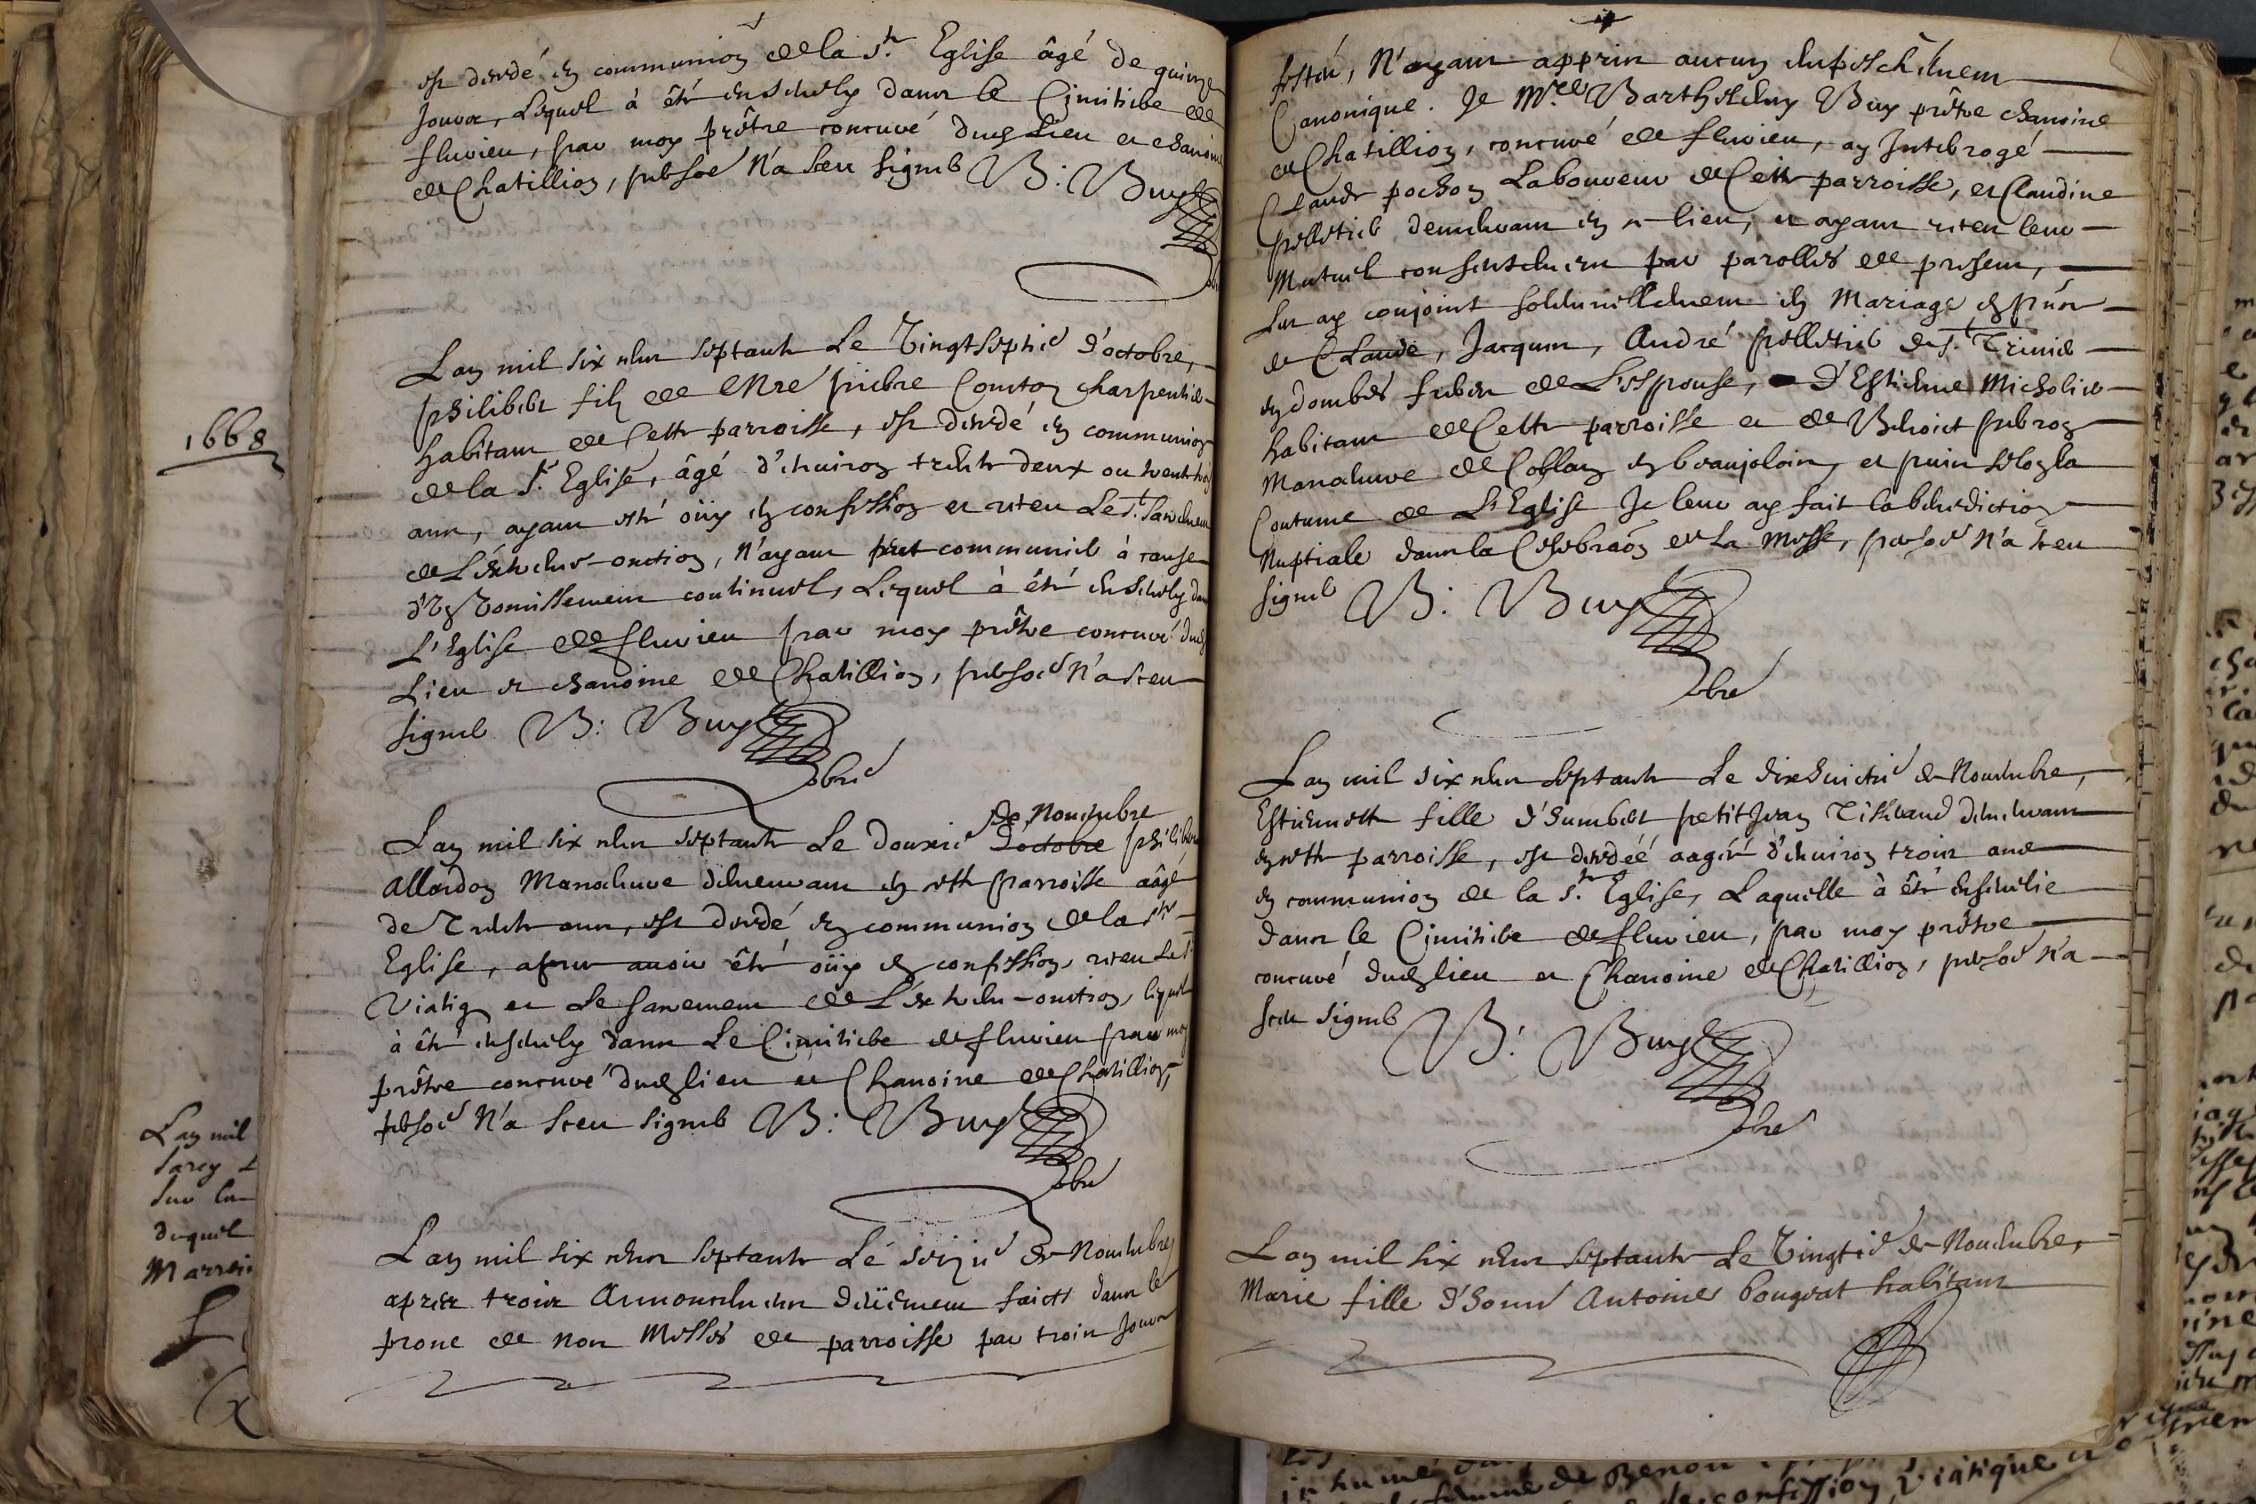 est decedé en communion de la Ste Eglise âgé de quinze
Jours, Lequel à été ensevely dans le Cimitiere de
fluvieu, par moy prêtre concuré dudt Lieu et chanoine
de Chatillion, subsoé N'a sceu signer B: Buy
L'an mil six cens septante Le Vingtseptie d'octobre,
philibert fils de Mre pierre Comton charpentier
habitant de Cette parroisse, est decedé en communion
de la Ste Eglise, âgé d'environ trente deux ou trente trois
ans, ayant esté oüy en confession et receu Le St Sacrement
de L'éxtreme-onction, N'ayant peut communier à cause
d'un Vomissement continuel, Lequel à été ensevely dans
L'Eglise de fluvieu par moy prêtre concuré dudt
Lieu et chanoine de Chatillion, subsoé N'a sceu
signer B: Buy
obre
de Novembre
L'an mil six cens septante Le douzie d'octobre philibert
Allordon Manoeuvre demeurant en cette parroisse aâgé
de Trente ans, est decedé en communion de la Ste
Eglise, apres avoir été oüy en confession, receu Le St
Viatiq et Le sacrement de L'éxtreme-onction, lequel
à été ensevely dans Le Cimitiere de fluvieu par moy
prêtre concuré dudt lieu et Chanoine de Chatillion,
subsoé N'a sceu signer B: Buy
obre
L'an mil six cens septante Le seizie de Novembre
apres trois Annoncemens deüement faicts dans le
prone de nos Messes de parroisse par trois Jours
festés, N'ayant appris aucun empeschement
Canonique. Je Mre Barthelemy Buy prêtre chanoine
de Chatillion, concuré de fluvieu, ay Interogé
Claude pochon Laboureur de Cette parroisse, et Claudine
pelletier demeurant en ce lieu, et ayant receu leur
Mutuel consentement par parolles de present,
Les ay conjoint solemnellement en Mariage en pnce
de Claude, Jacques, André pelletier de St Trivier
en dombes freres de L'espouse, d'Estienne Micholier
habitant de Cette parroisse et de Benoict subron
Manoeuvre de Coblan en beaujolois, et puis selon la
Coutume de L'Eglise Je leur ay fait la benediction
Nuptiale dans la Celebraon de La Messe, subsoé N'a sceu
signer B: Buy
obre
L'an mil six cens septante Le dixhuictie de Novembre,
Estiennette fille d'humbert petitJean Tisserand demeurant
en cette parroisse, est decedéé aagéé d'environ trois ans
en communion de la Ste Eglise, Laquelle à été ensevelie
dans le Cimitiere de fluvieu, par moy prêtre
concuré dudt lieu et Chanoine de Chatillion, subsoé N'a
sceu signer B: Buy
obre
L'an mil six cens septante Le Vingtie de Novembre,
Marie fille d'honé Antoine bougeat habitant
1668
L'an mil
Sarcy
sur les
duquel
Marrein